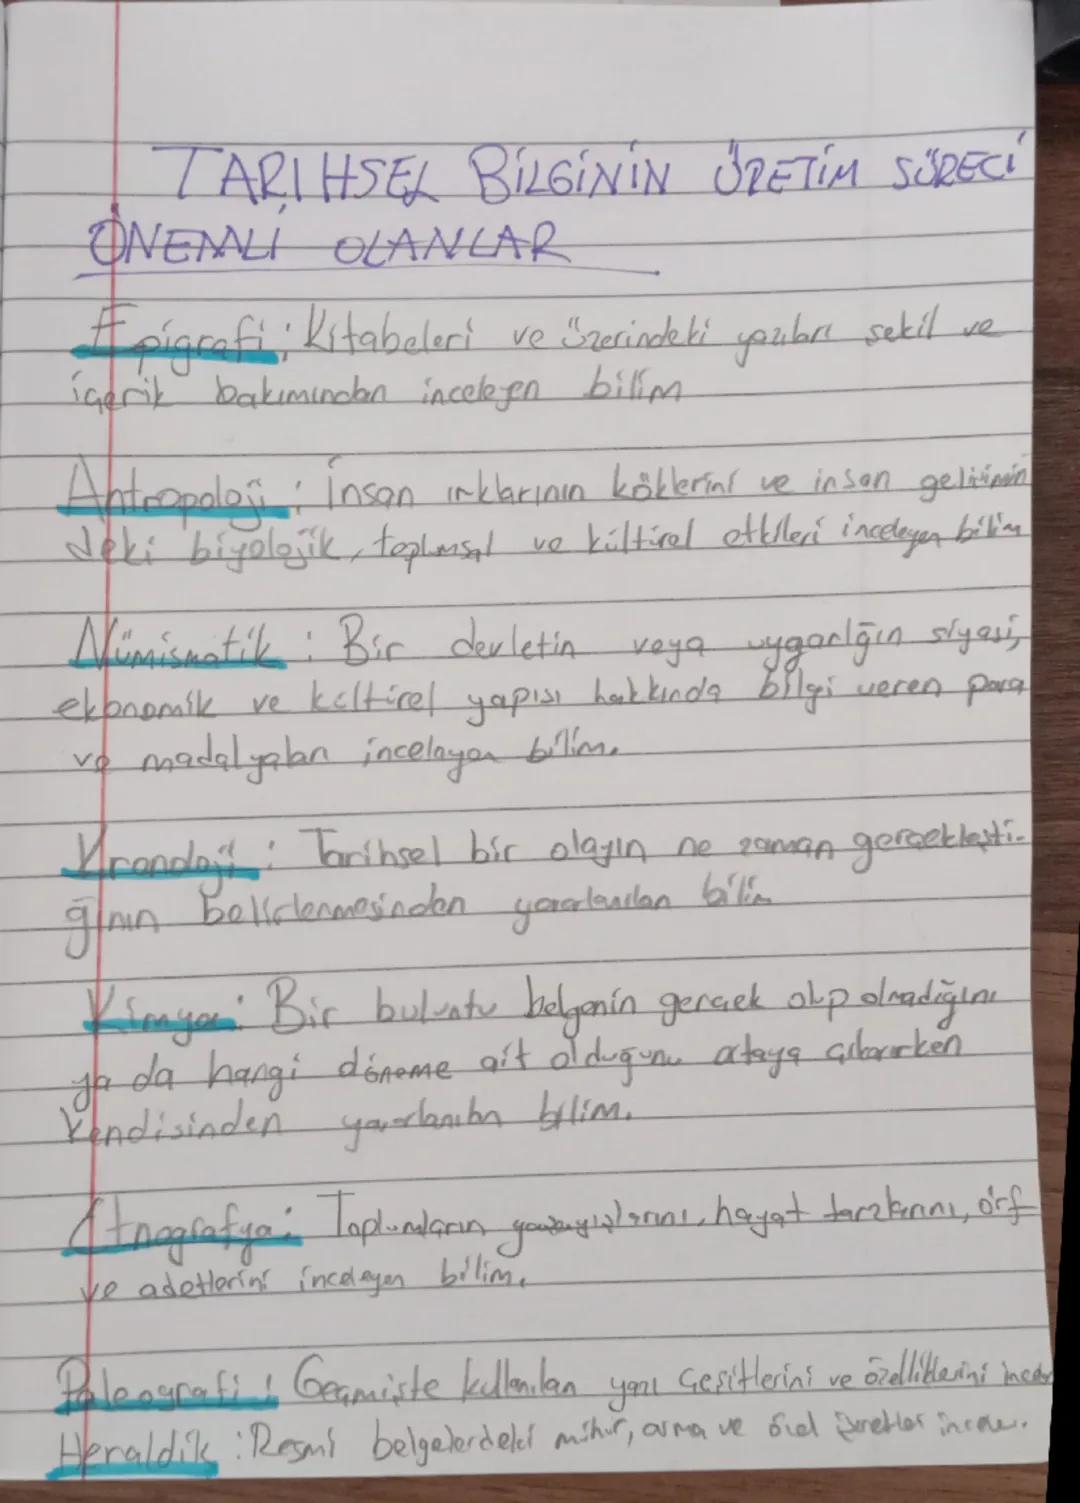 TARIHSEL BİLGİNİN ÜRETİM SÜRECİ
ÖNEMLİ OLANLAR
Epigrafi: Kitabeleri ve üzerindeki yazıları sekil ve
içerik bakımından inceleyen bilim
Antropoloji: İnsan ırklarının köklerini ve insan gelişimin
deki biyolojik, toplumsal ve kültürel etkileri inceleyen bilim
Nümismatik: Bir devletin veya uygarlığın siyasi,
ekonomik ve kültürel yapısı hakkında bilgi veren para
ve madalyaları inceleyen bilim.
Kronoloji: Tarihsel bir olayın ne zaman gerçekleşti-
ğinin belirlenmesinden yararlanılan bilim
Kimya: Bir buluntu belgenin gerçek olup olmadığını
ya da hangi döneme ait olduğunu ortaya çıkarırken
kendisinden yararlanılan bilim.
Etnografya: Toplumların hayat tarzlarını, örf
ve adetlerini inceleyen bilim.
Paleografi: Geçmişte kullanılan yazı çeşitlerini ve özelliklerini
Heraldik: Resmi belgelerdeki mühür, arma ve özel işaretler